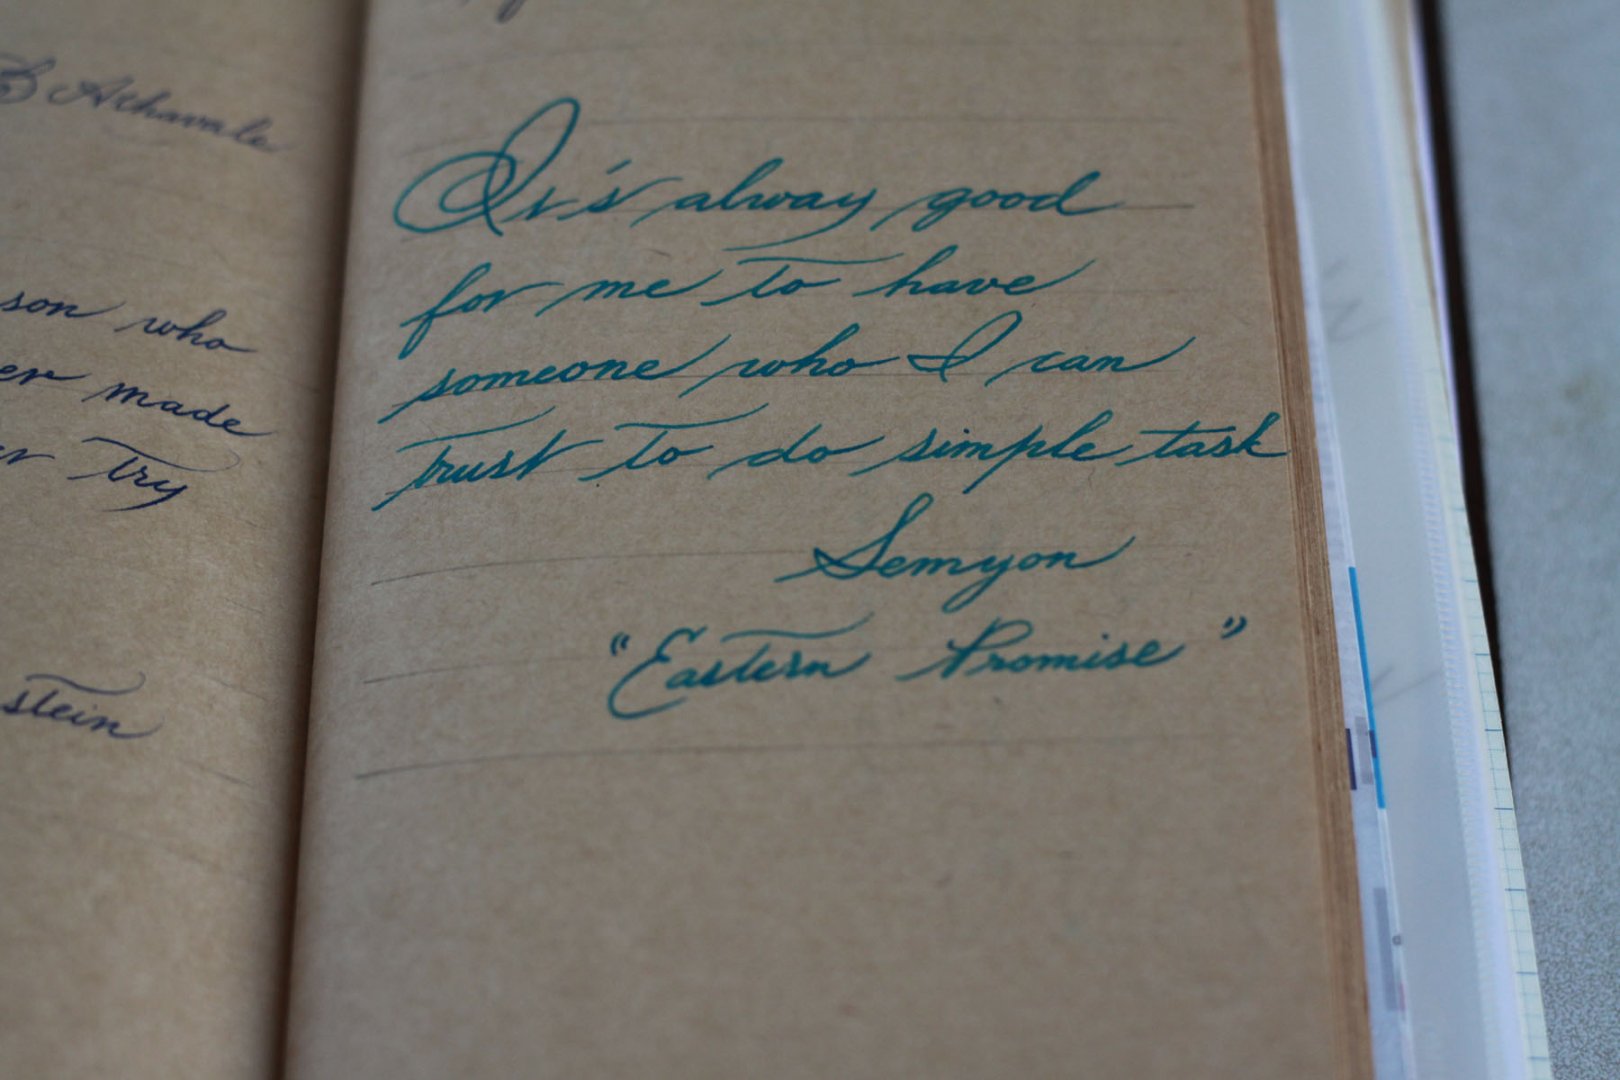 B Athavale
son who
er made
try
stein
It's alway good
for me to have
someone who I can
trust to do simple task
Semyon
"Eastern Promise"